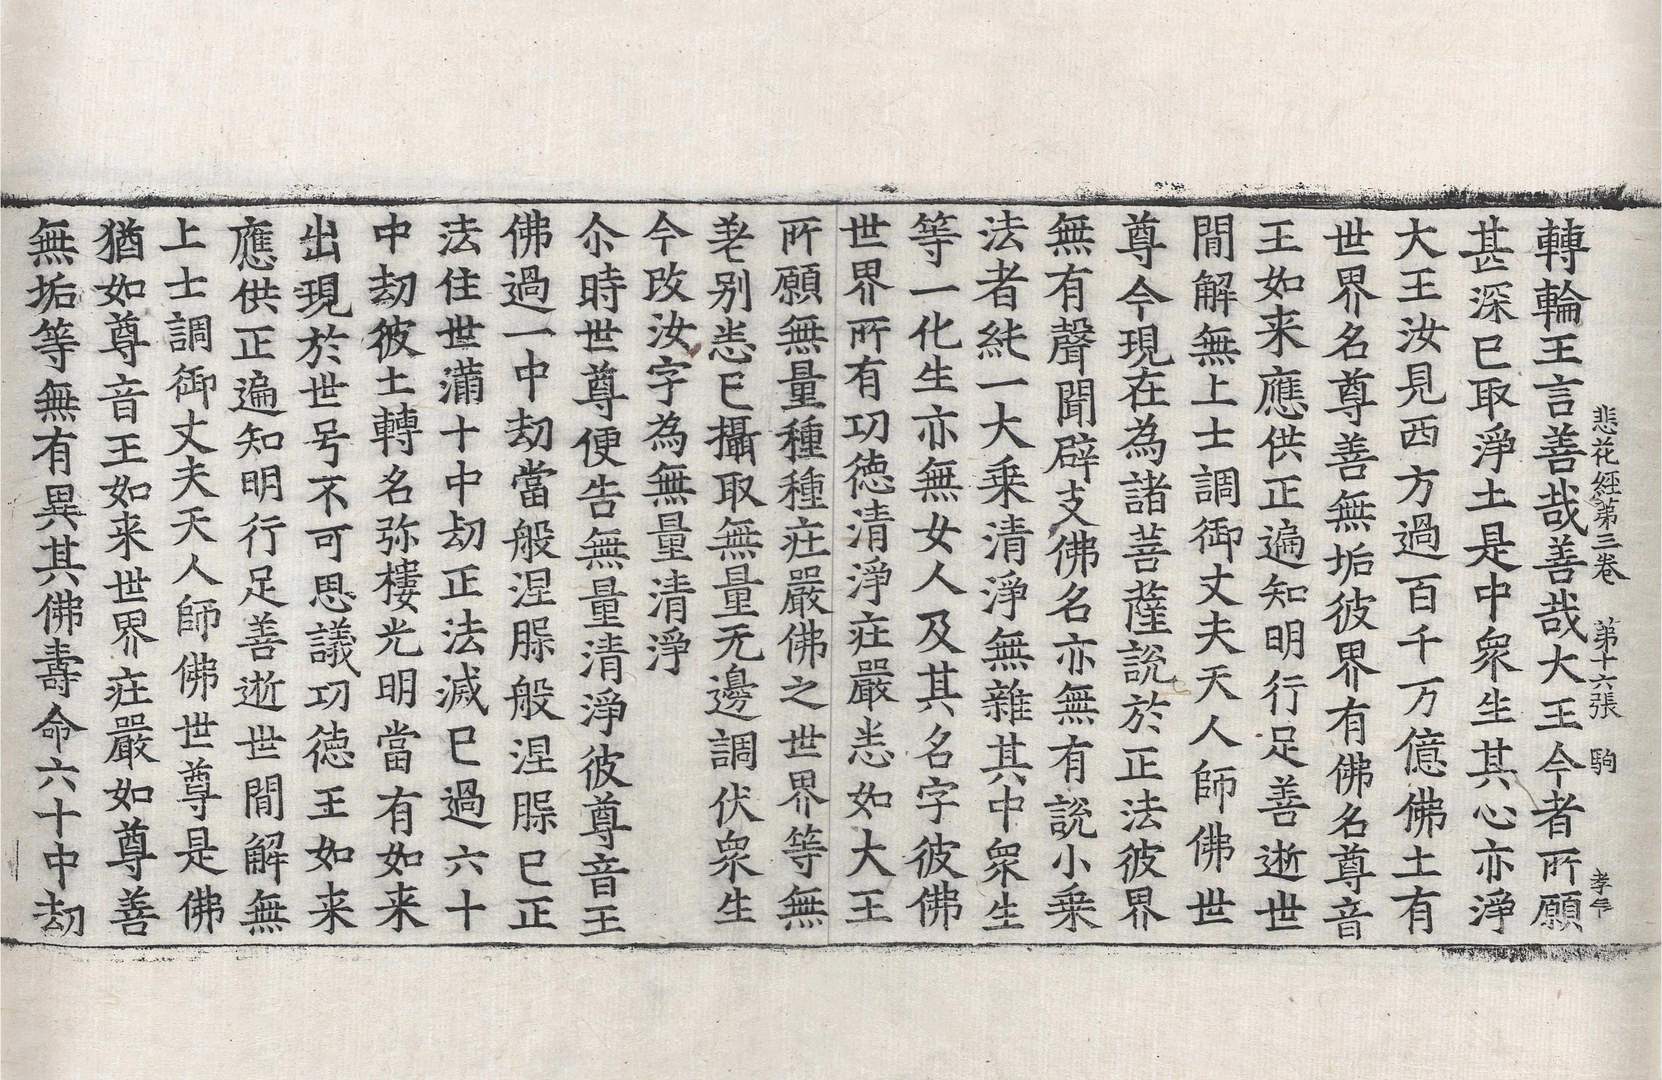 悲花経第三卷　第十六張　駒　孝年
轉輪王言善哉善哉大王今者所願
甚深已取淨土是中衆生其心亦淨
大王汝見西方過百千万億佛土有
世界名尊善無垢彼界有佛名尊音
王如来應供正遍知明行足善逝世
閒解無上士調御丈夫天人師佛世
尊今現在為諸菩薩說於正法彼界
無有聲聞辟支佛名亦無有說小乗
法者純一大乗清淨無雜其中衆生
等一化生亦無女人及其名字彼佛
世界所有功徳清淨疘嚴悉如大王
所願無量種種疘嚴佛之世界等無
差别悉已攝取無量无邊調伏衆生
今改汝字為無量清淨
尒時世尊便告無量清淨彼尊音王
佛過一中劫當般涅槃般涅槃已正
法住世滿十中劫正法滅已過六十
中劫彼土轉名弥樓光明當有如来
出現於世号不可思議功徳王如来
應供正遍知明行足善逝世閒解無
上士調御丈夫天人師佛世尊是佛
猶如尊音王如来世界疘嚴如尊善
無垢等無有異其佛壽命六十中劫